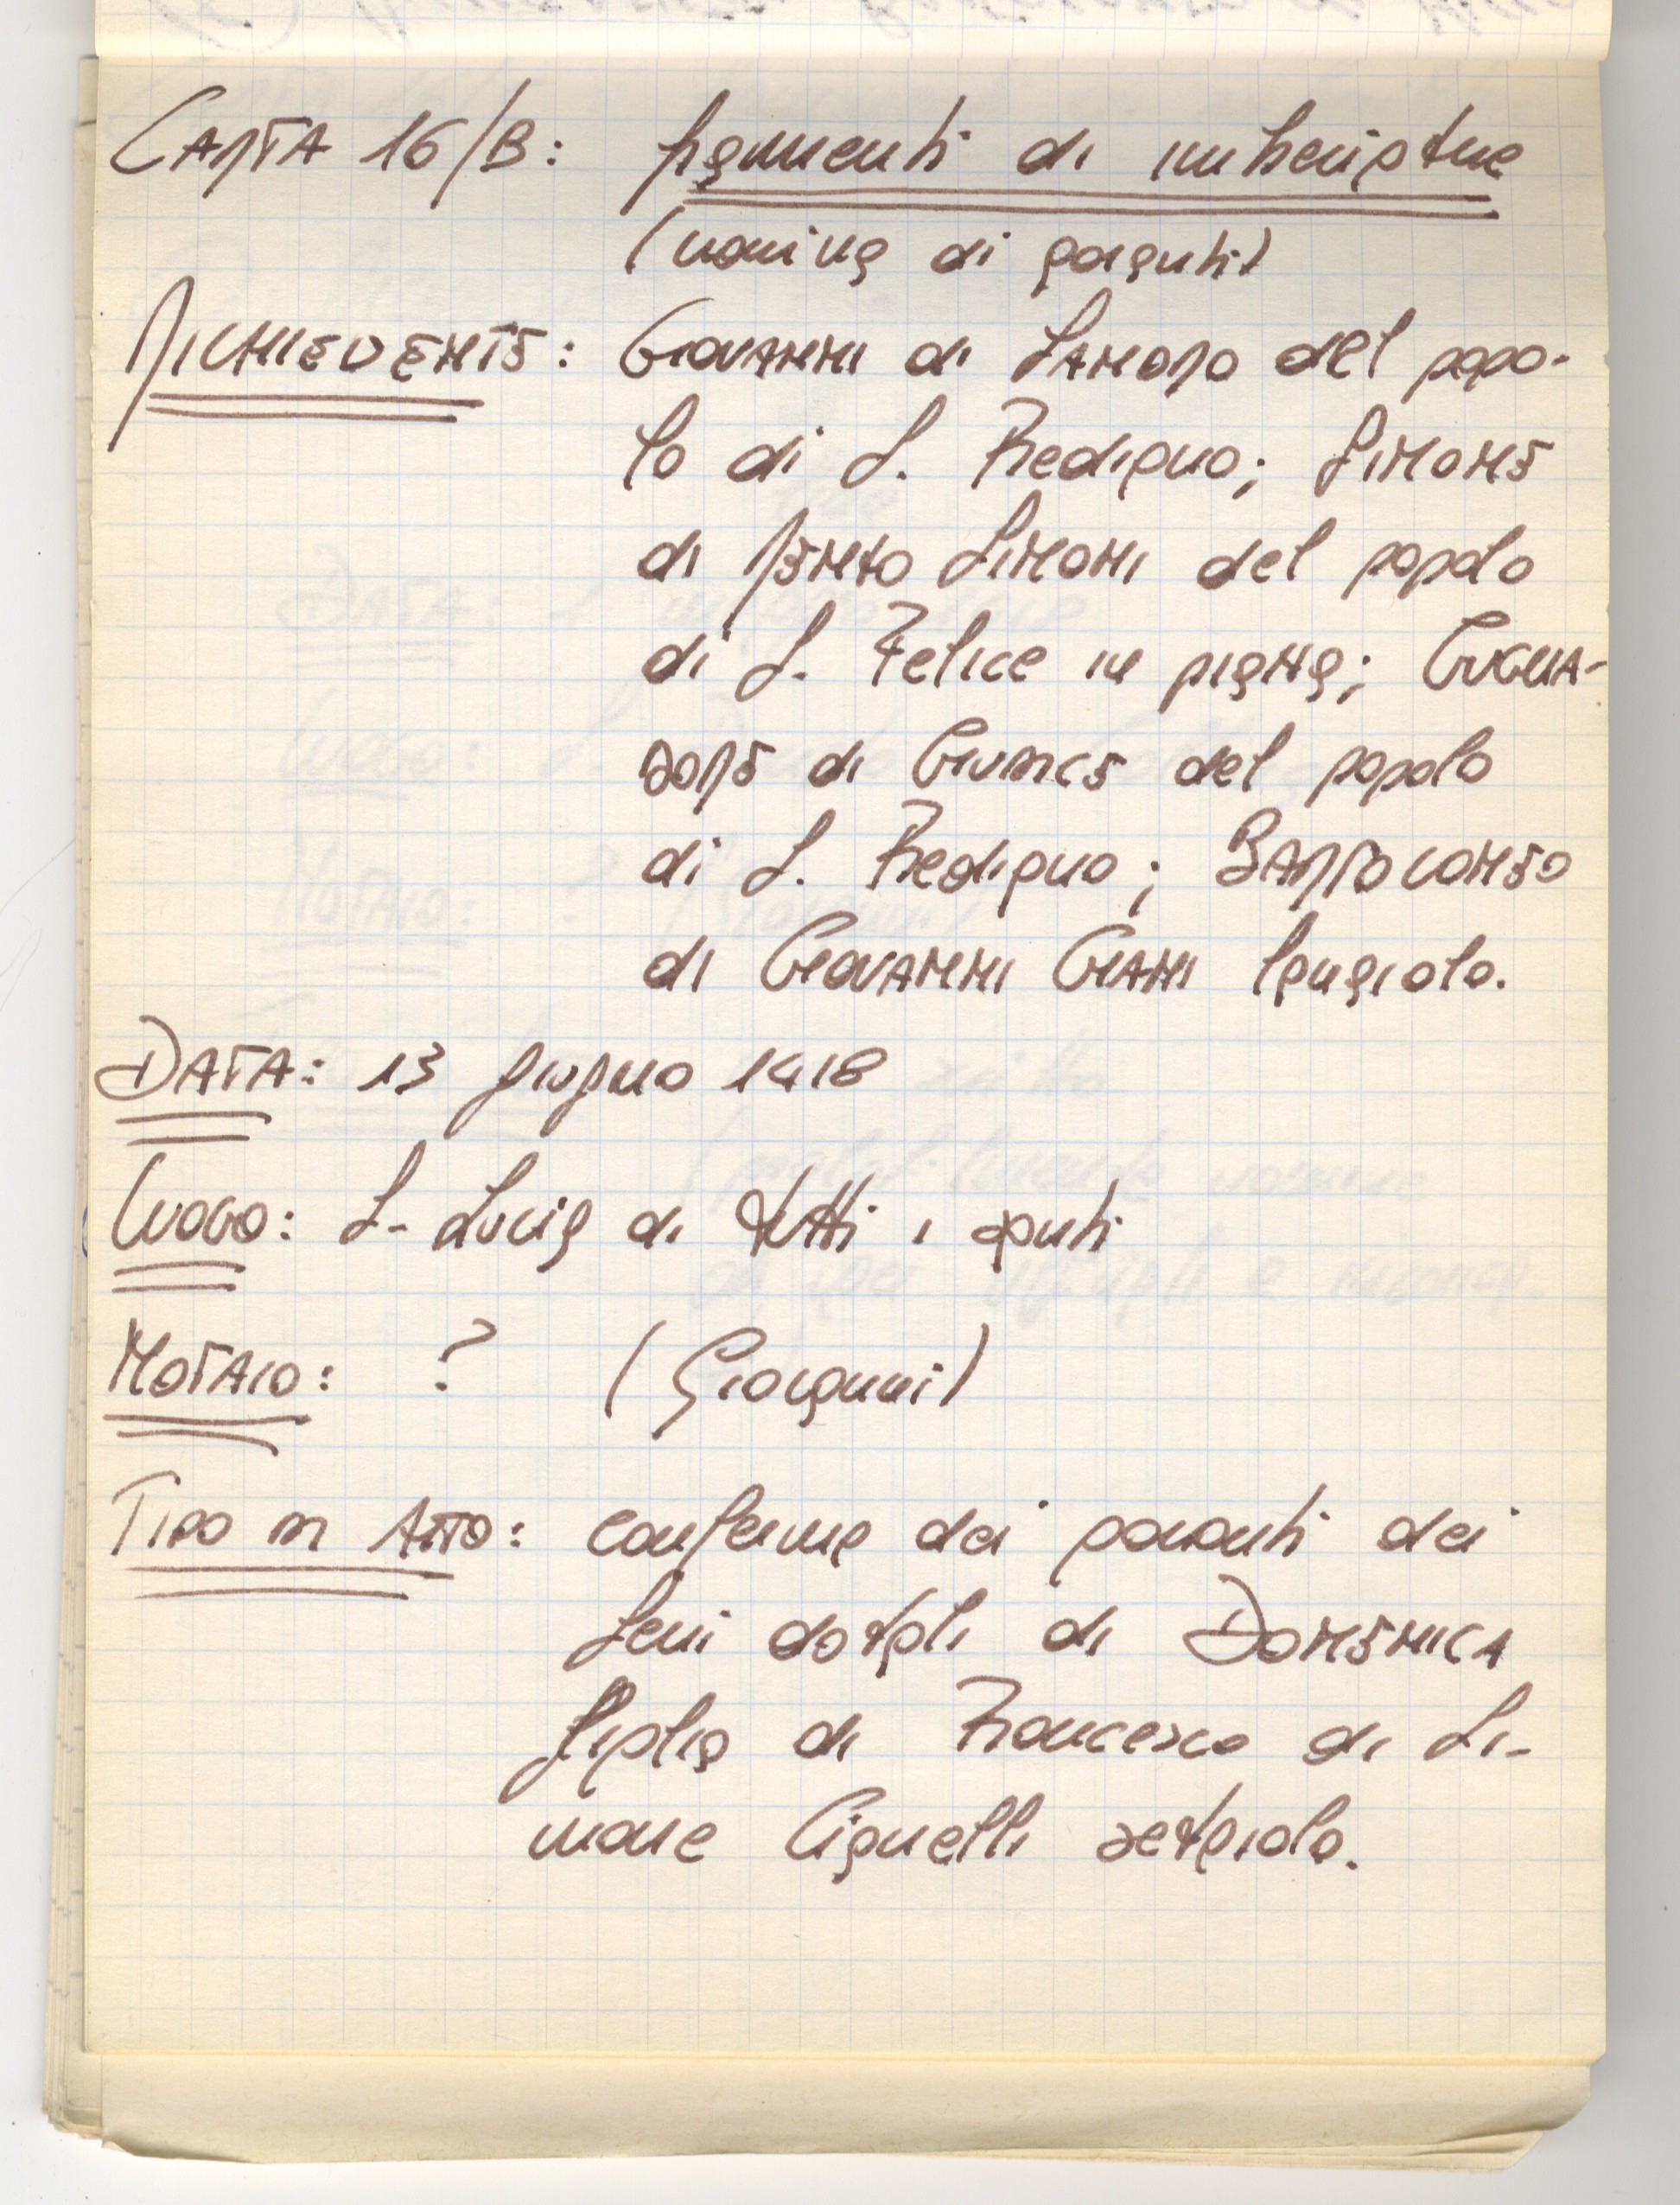 CARTA 16/B: frammenti di imbreviature
(nomina di garanti)
RICHIEDENTE: GIOVANNI di SANDRO del popo-
lo di S. Frediano; SIMONE
di RENTO SIMONI del popolo
di S. Felice in piazza; GUGLIA-
DORE di GIUNCE del popolo
di S. Frediano; BARTOLOMEO
di GIOVANNI GIANI lanaiolo.
DATA: 13 giugno 1418
LUOGO: S. Lucia di tutti i santi
NOTAIO: ? (Giovanni)
TIPO DI ATTO: conferma dei garanti dei
beni dotali di DOMENICA
figlia di Francesco di Si-
mone Cianelli setaiolo.